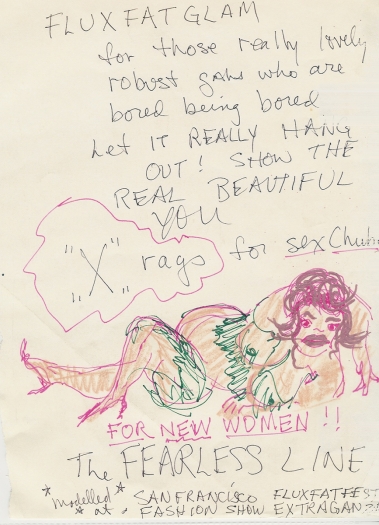 FLUXFATGLAM
for those really lovely
robust gals who are
bored being bored
Let IT REALLY HANG
OUT! SHOW THE
REAL BEAUTIFUL
YOU
"X" rags for sex
FOR NEW WOMEN !!
The FEARLESS LINE
*modelled* SAN FRANCISCO FLUXFATFEST
*at* FASHION SHOW